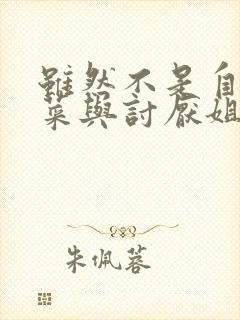 雖然不是自
菜與討厭姐
朱佩蓉